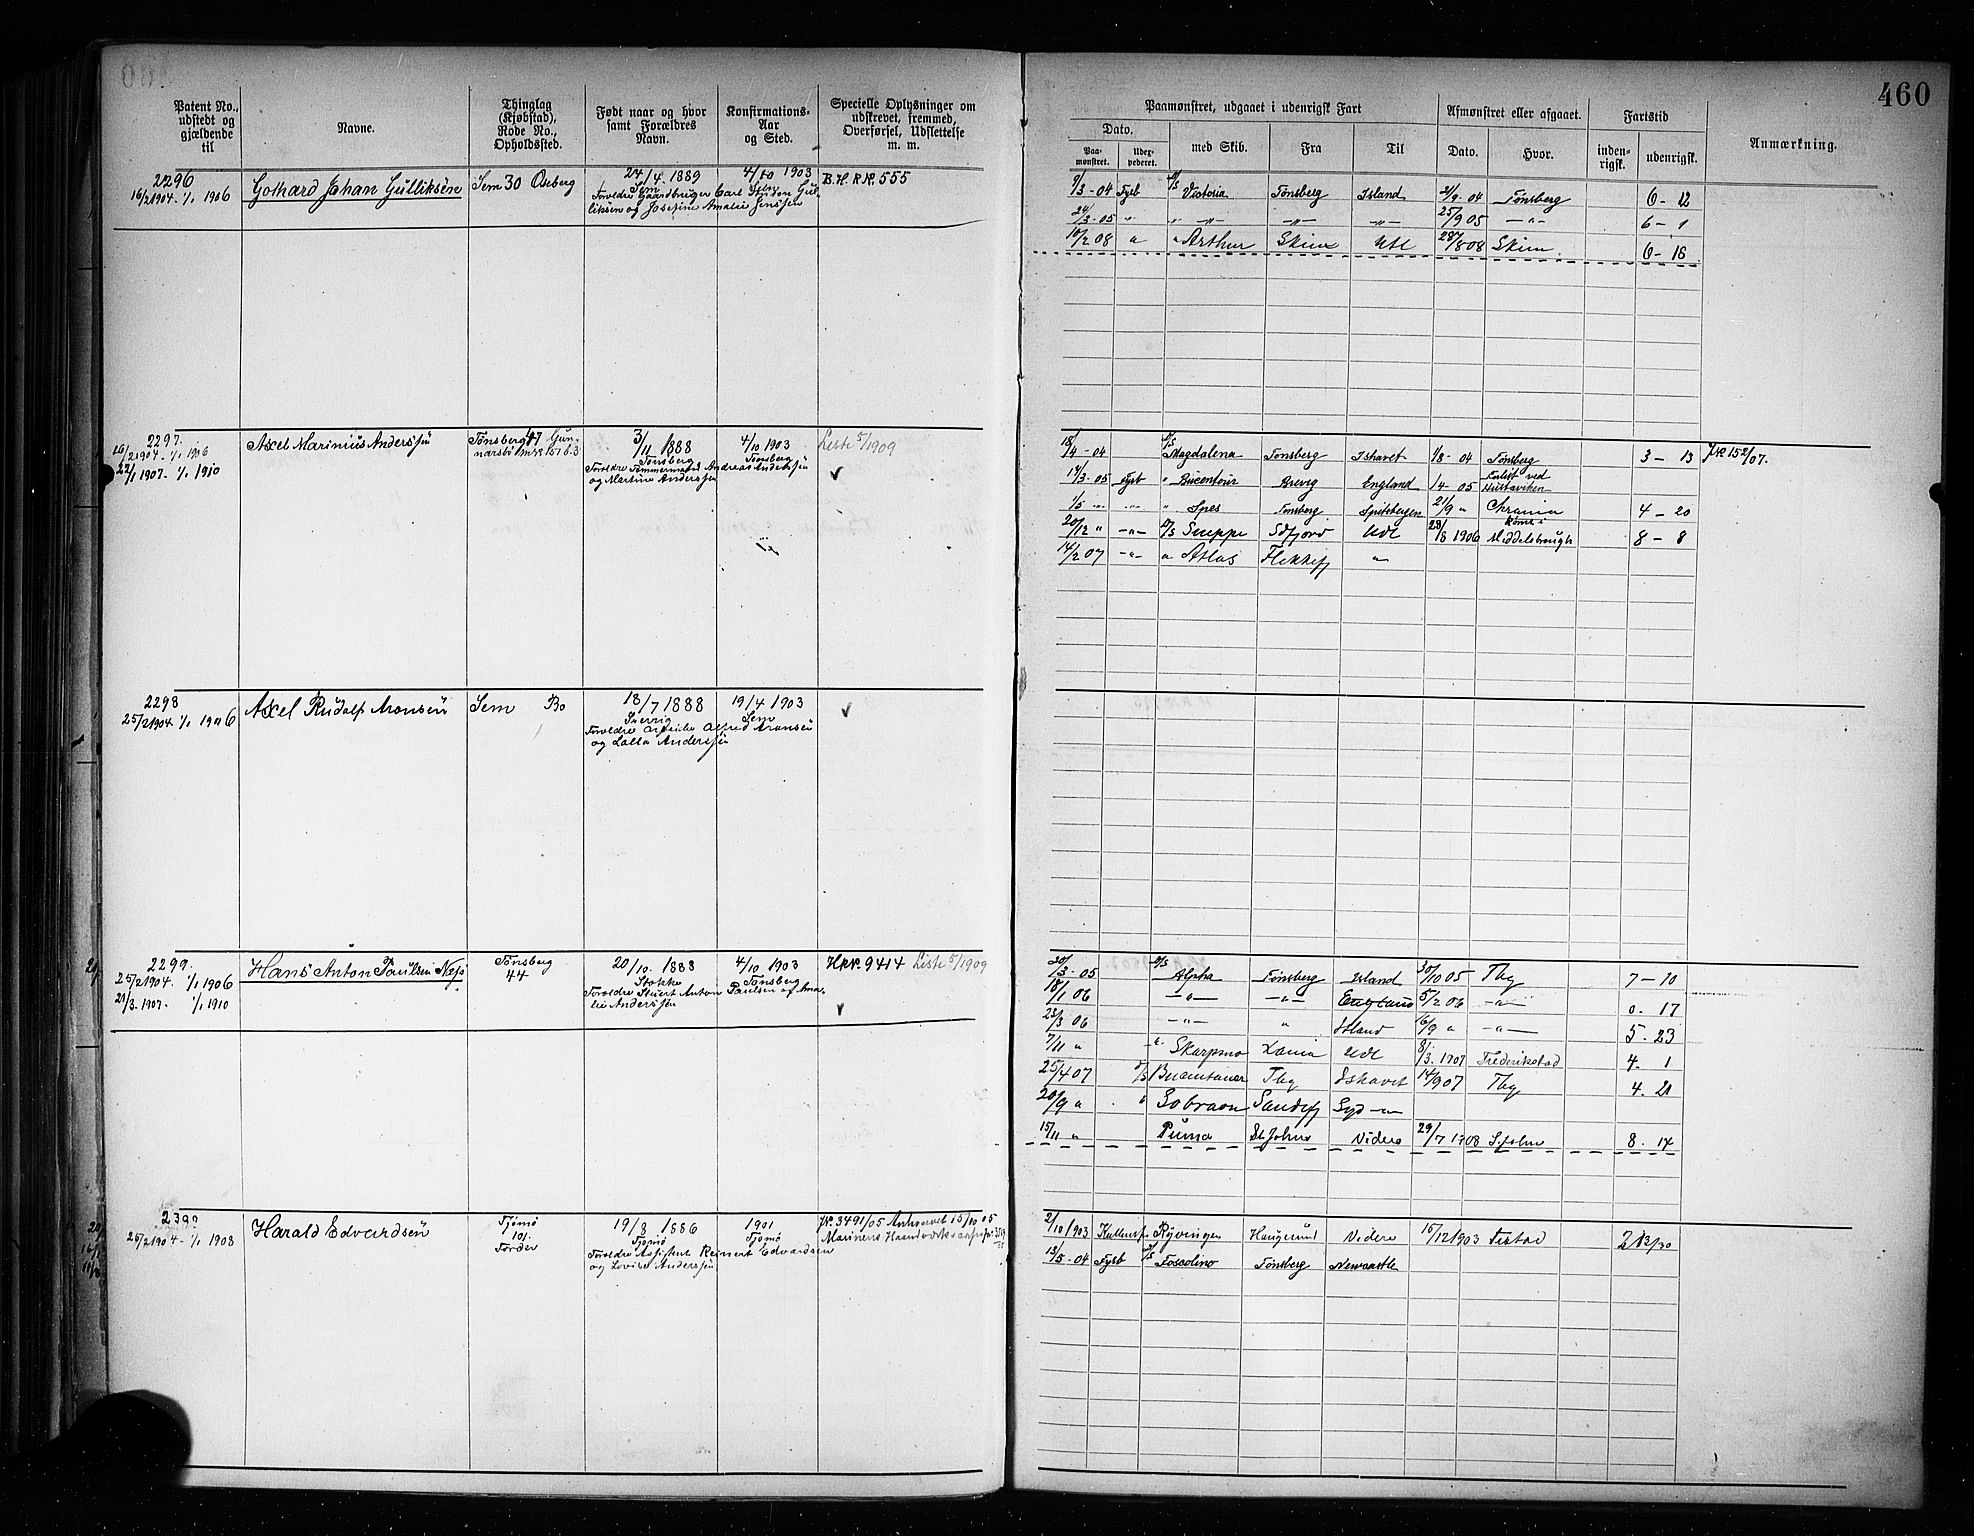 460
Patent No., udstedt og gjældende til
Navne.
Thinglag (Kjøbstad), Rode No., Opholdssted.
Født naar og hvor samt Forældres Navn.
Konfirmations-Aar og Sted.
Specielle Oplysninger om udskrevet, fremmed, Overførsel, Udslettelse m. m.
Paamønstret, udgaaet i udenrigsk Fart
Dato.
Paa-mønstret.
Udex-pederet.
med Skib.
Fra
Til
Afmønstret eller afgaaet.
Dato.
Hvor.
Fartstid
inden-rigsk.
udenrigsk.
Anmærkning.
2296
16/2 1904. 1/1 1906
Gothard Johan Gulliksen
Sem 30 Oseberg
24/4. 1889
Sem
Forældre Gaardbruger Carl Anton Gul-
liksen og Josefine Amalie Jenssen
4/10 1903
B.H.R.R. 555
9/3-04 Fysb Victoria Tønsberg Island 21/9-04 Tønsberg 6-12
24/3-05 " " -"- -"- -"- 25/9 05 -"- 6-1
10/2 08 " " Arthur Skien Udl 28/8 08 Skien 6-18
2297.
16/2 1904. 1/1 1906
22/1 1907. 1/1 1910
Axel Marinius Anderssen
Tønsberg 47 Gun-
narsbø
3/11 1888
Tønsberg
Forældre Tømmermand Andreas Anderssen
og Martine Anderssen
4/10 1903
Tønsberg
Liste 5/1909
18/4-04 Magdalena Tønsberg Ishavet 1/8-04 Tønsberg 3-13 JN 152/07.
13/3-05 Fysb " Bucentaur Brevig England 1/4-05 Forlist ved Hustaviken
1/5 " " Spes Tønsberg Spitsbergen 21/9 " Chrania 4-20
20/12 " -"- Udl 23/8 1906 Rømt i Middelsbrough 8-8
14/2 07 -"- " Atlas Flekkefj "
2298
25/2 1904. 1/1 1906
Axel Rudolf Aronsen
Sem Bo
18/7 1888
Sverrig
Forældre Arbeider Alfred Aronsen
og Lalla Anderssen
19/4 1903
Sem
2299
25/2 1904. 1/1 1906
20/3. 1907. 1/1 1910
Hans Anton Paulsen Næs
Tønsberg
44
20/10. 1888
Stokke
Forældre Stuert Anton Paulsen og Ama-
lie Anderssen
4/10 1903
Tønsberg
H.R.R. 9414 Liste 5/1909
20/3-05 Alpha Tønsberg Island 30/10 05 Tbg 7-10
18/1 06 -"- -"- England 5/2 06 -"- 0. 17
23/3 06 -"- " Island 16/9 " -"- 5. 23
7/11 " " Skarpsno Xania Udl 8/3. 1907 Frederikstad 4. 1
25/4 07 Bucentaur Tbg Ishavet 14/9 07 Tbg 4. 20
20/9 " " Sobraon Sandefj Syd -"-
15/11 " Puma St. Johns Videre 29/7 1908 8. 14
25/2 1904. 1/1 1908
Harald Edvardsen
Tjømø
101.
Førder
19/8 1886
Tjømø
Forældre Assistent Reinert Edvardsen
og Lovise Anderssen
1901
Tjømø
JN. 3491/05 Anhørevet 15/10 05
2/10 1903 Ryvingen Haugesund Videre 15/12 1903 Frstad 2 13/30
13/5-04 Fysb Foscolino Tønsberg Newcastle